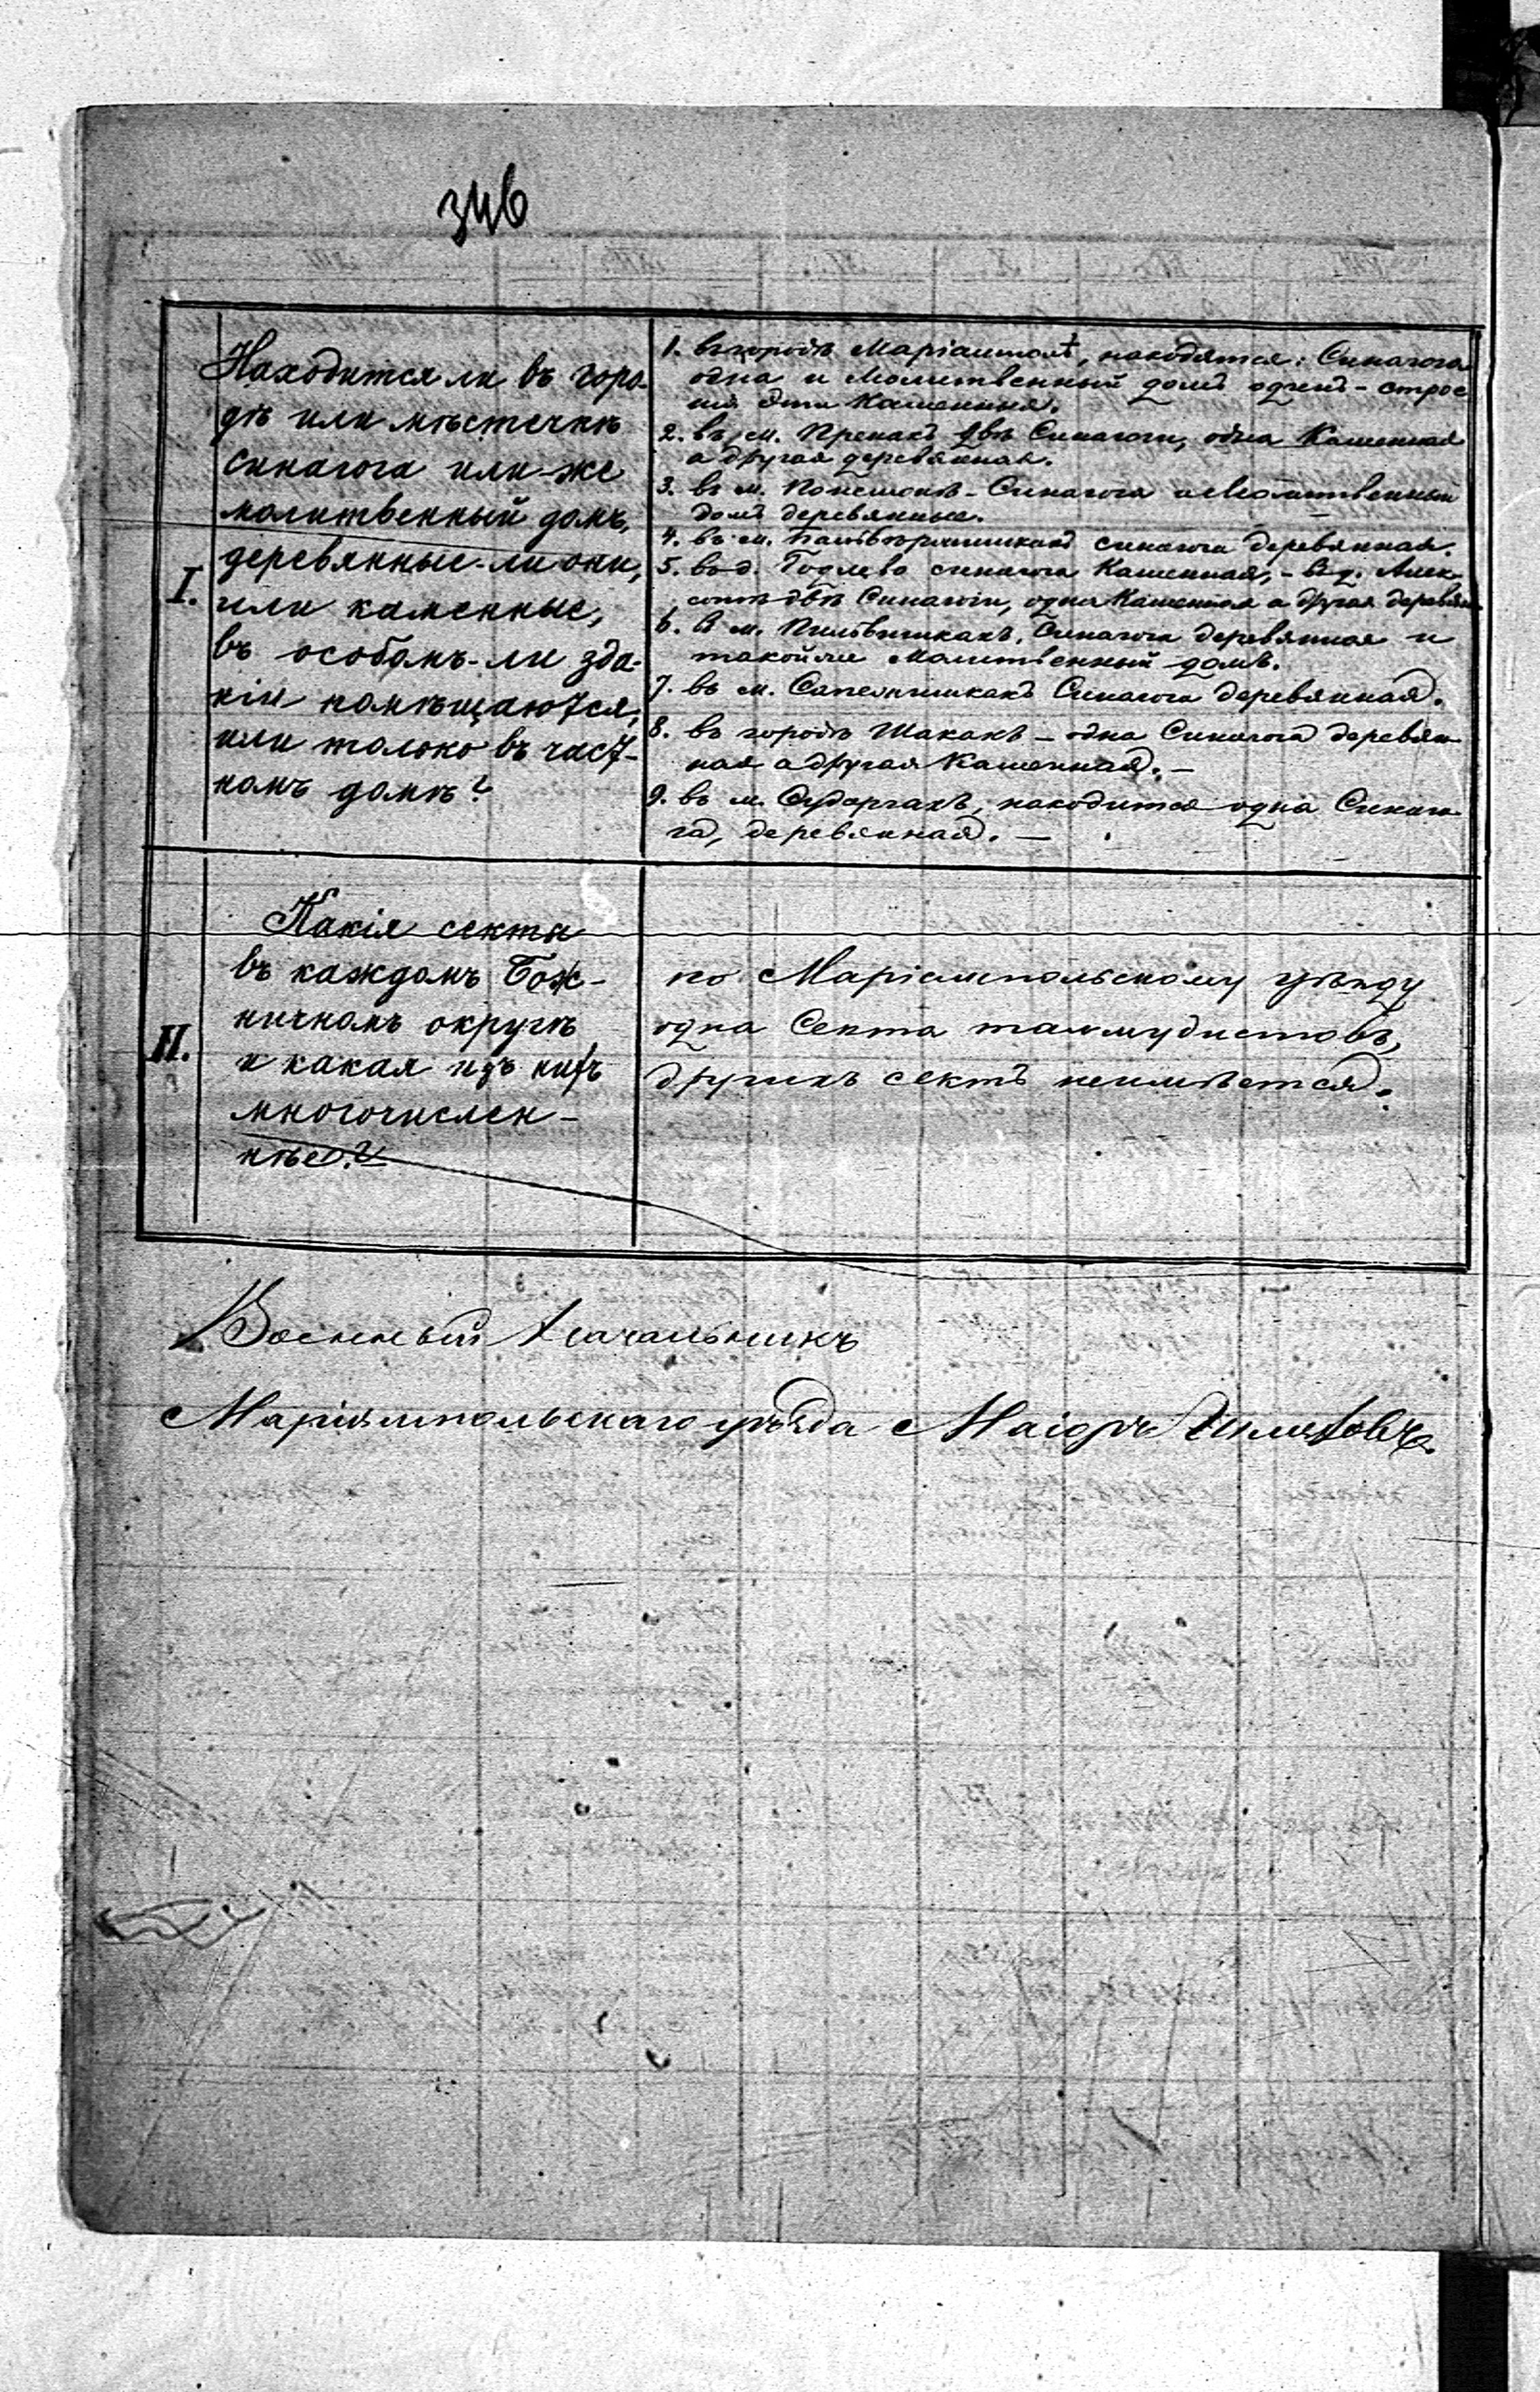 346
I.
Находится ли въ горо-
дѣ или мѣстечкѣ
синагога или-же
молитвенный домъ,
деревянные-ли они,
или каменные,
въ особомъ-ли зда-
ніи помѣщаются,
или только въ част-
номъ домѣ?
1. въ городѣ Маріамполѣ, находятся: Синагога
одна и Молитвенный домъ одинъ - строе
нія эти Каменныя.
2. въ м. Пренахъ двѣ Синагоги, одна Каменная
а другая деревянная.
3. въ м. Понемонѣ - Синагога и Молитвенный
домъ деревянные.
4. въ м. синагога деревянная.
5. въ д. Годлево синагога Каменная, - въ д. Алек
сотѣ двѣ Синагоги, одна Каменная а другая деревян.
6. въ м. Пильвишкахъ, Синагога деревянная и
такой же Молитвенный домъ.
7. въ м. Сапежишкахъ Синагога деревянная.
8. въ городѣ Шакахъ - одна Синагога деревян-
ная а другая Каменная. -
9. въ м. Сударгахъ, находится одна Синаго
га, деревянная. -
II.
Какія секты
въ каждомъ Бож-
ничномъ округѣ
и какая изъ нихъ
многочислен-
нѣе?
по Маріампольскому уѣзду
одна Секта талмудистовъ,
другихъ сектъ неимѣется.
Военный Начальникъ
Маріямпольскаго уѣзда Маіоръ